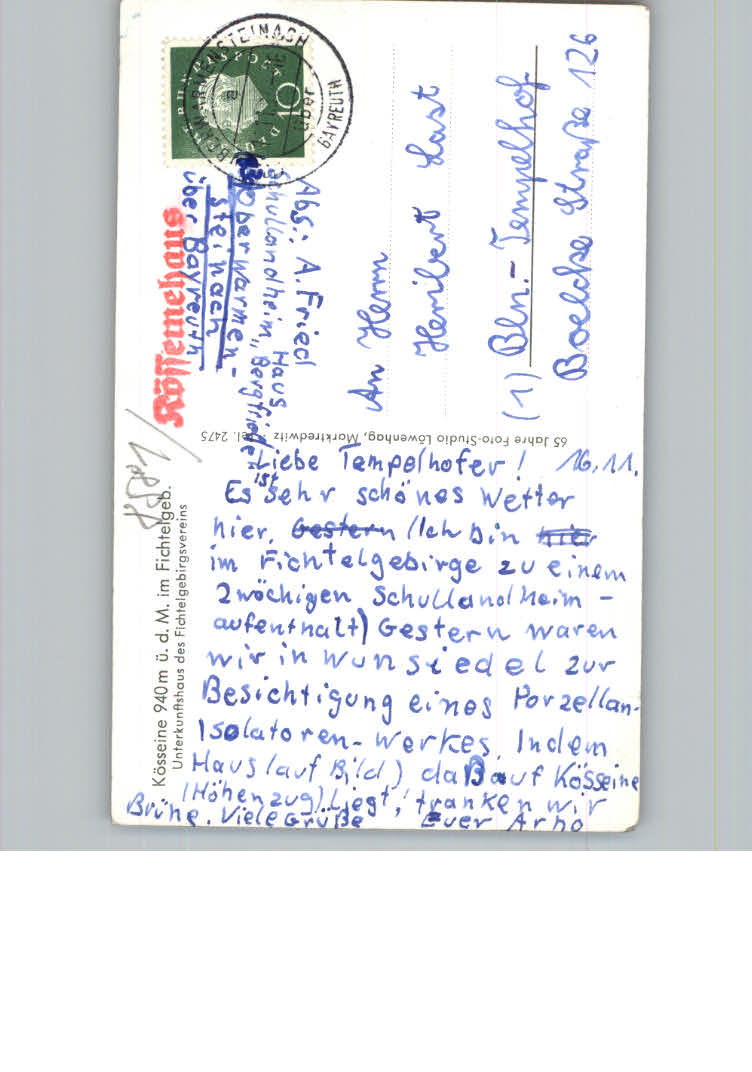 Kösseine 940m ü. d. M. im Fichtelgeb.
Unterkunftshaus des Fichtelgebirgsvereins
Liebe Tempelhofer! 16.11.
Es ist sehr schönes Wetter
hier. Gestern (Ich bin hier
im Fichtelgebirge zu einem
2wöchigen Schullandheim-
aufenthalt) Gestern waren
wir in Wunsiedel zur
Besichtigung eines Porzellan-
Isolatoren-Werkes. Indem
Haus (auf Bild) daß auf Kösseine
(Höhenzug) liegt, tranken wir
Brühe. Viele Grüße Euer Arno
65 Jahre Foto-Studio Löwenhag, Marktredwitz, Tel. 2475
Kösseinehaus
Abs.: A. Friedl
Schullandheim, Haus
"Bergfriede"
Oberwarmen-
steinach
über Bayreuth
DEUTSCHE BUNDESPOST
OBERWARMENSTEINACH
über
BAYREUTH
a
An Herrn
Heribert Last
(1) Bln.-Tempelhof
Boelcke Straße 126